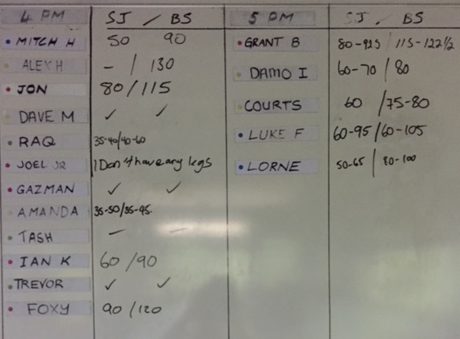 4 PM SJ / BS 5 PM SJ / BS
MITCH H 50 90 GRANT B 80-92.5 / 115-122½
ALEX H - / 130 DAMO I 60-70 / 80
JON 80/115 COURTS 60 / 75-80
DAVE M ✓ ✓ LUKE F 60-95 / 60-105
RAQ 35-40/40-60 LORNE 50-65 / 80-100
JOEL JR I Don't have any legs
GAZMAN ✓ ✓
AMANDA 35-50/35-95
TASH - -
IAN K 60/90
TREVOR ✓ ✓
FOXY 90/120